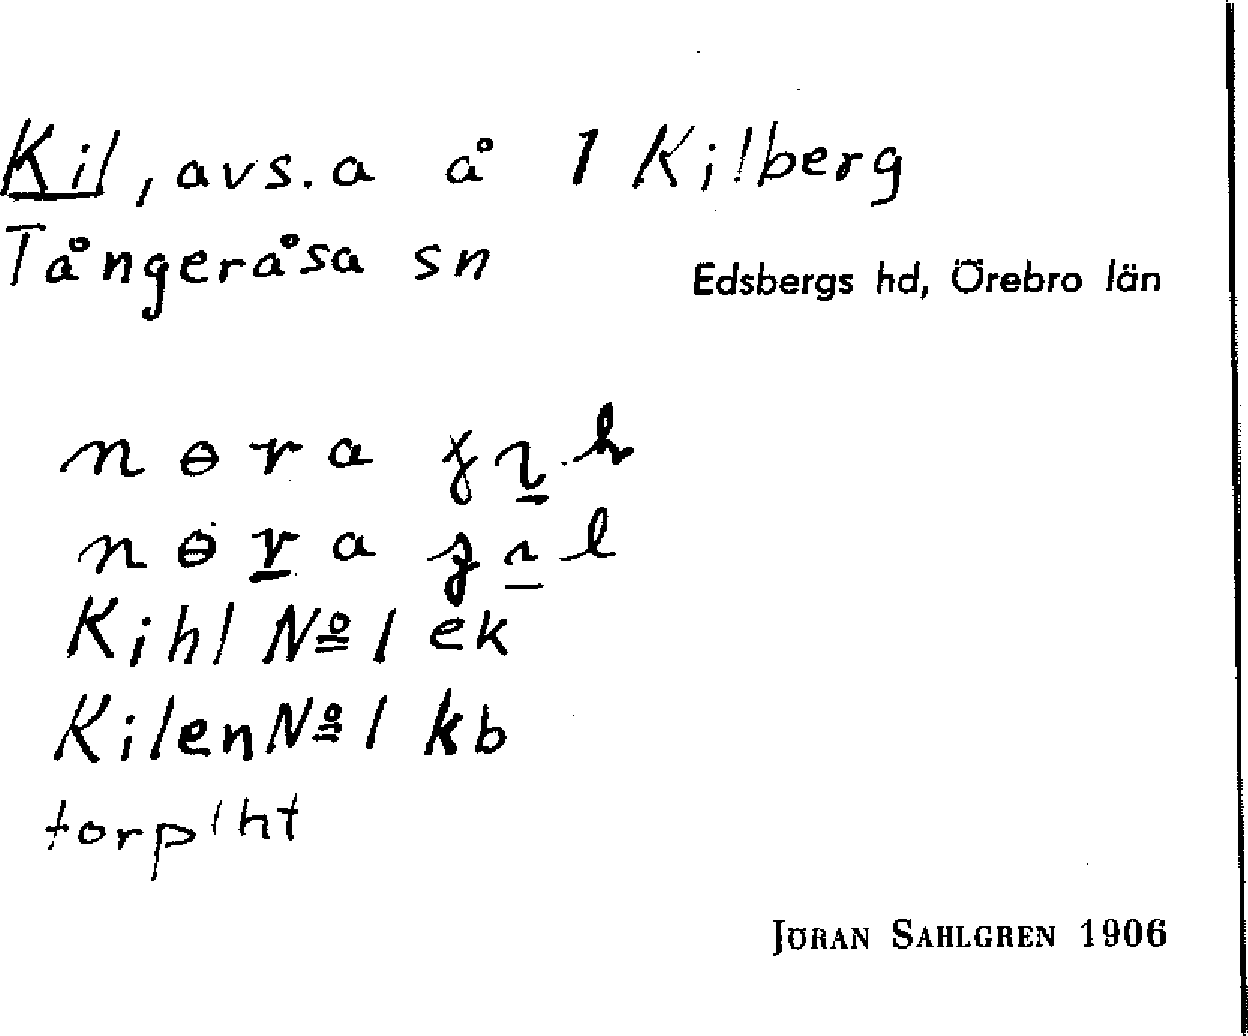 Kil, avs. a å 1 Kilberg
Tångeråsa sn
Edsbergs hd, Örebro län
nөra
nөra
Kihl Nº 1 ek
Kilen Nº 1 kb
torp 1 ht
JÖRAN SAHLGREN 1906